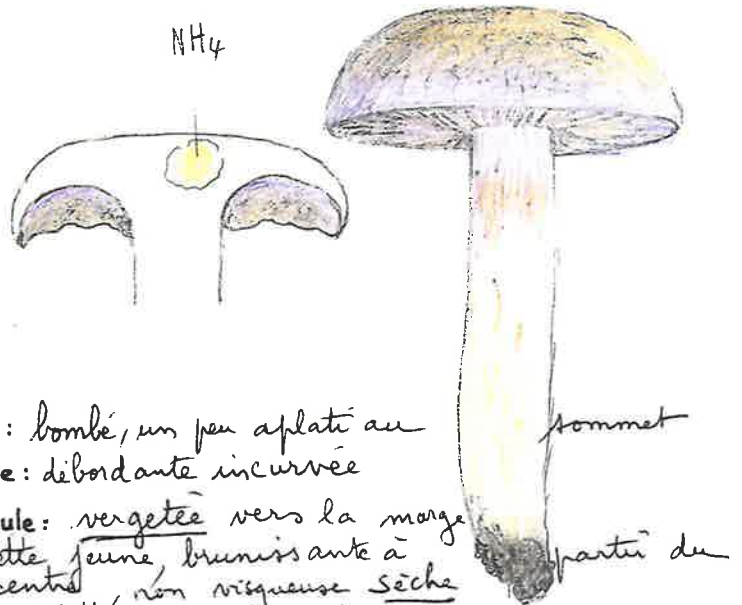 NH4
: bombé, un peu aplati au sommet
e: débordante incurvée
ule: vergetée vers la marge
ette jeune, brunissante à partir du
centre, non visqueuse sèche